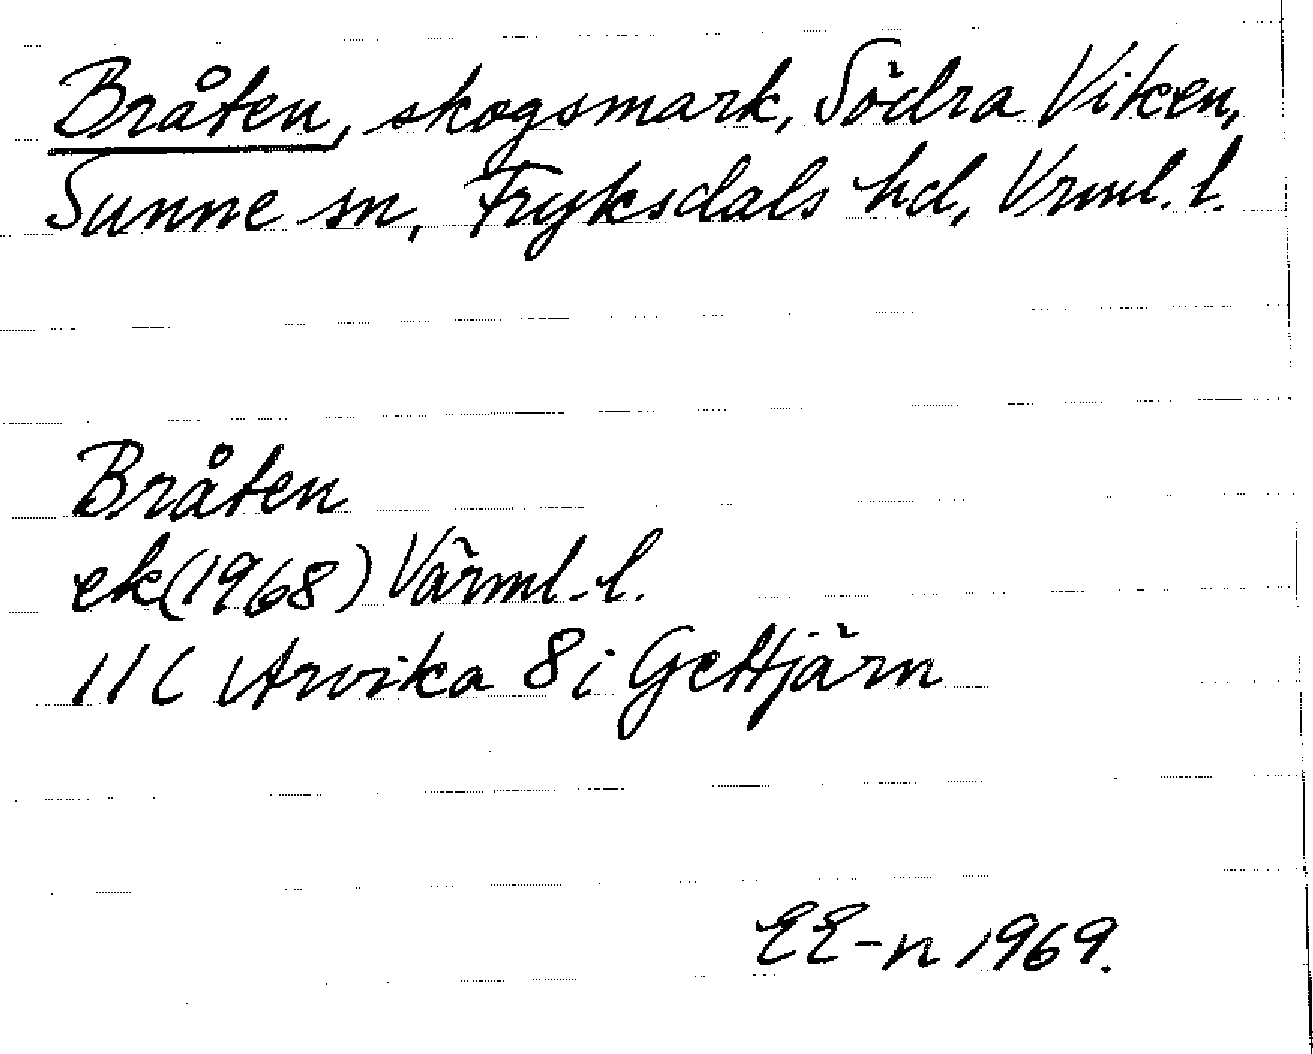 Bråten, skogsmark, Södra Viken,
Sunne sn, Fryksdals hd, Vrml. l.
Bråten
ek(1968) Värml. l.
11C Arvika 8i Gettjärn
EE-n 1969.